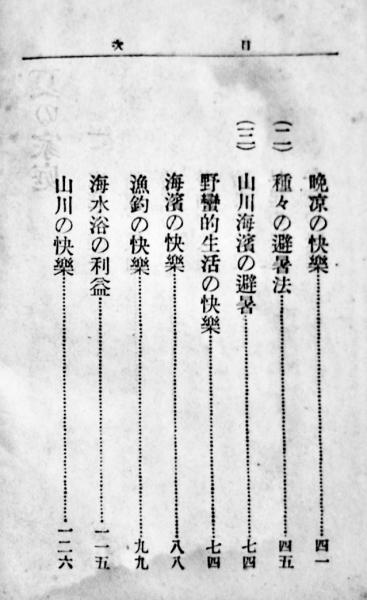 目次
晩凉の快樂……四一
(二) 種々の避暑法……四五
(三) 山川海濱の避暑……七四
野蠻的生活の快樂……七四
海濱の快樂……八八
漁釣の快樂……九九
海水浴の利益……一一五
山川の快樂……一二六